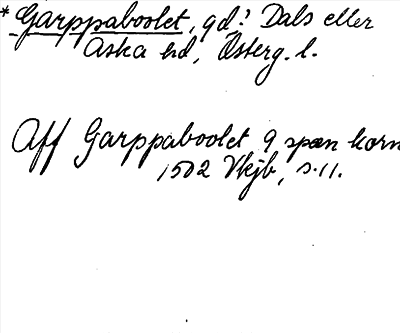 * Garppaboolet, gd? Dals eller
Aska hd, Österg. l.
Aff Garppaboolet 9 span korn
1502 Vkjb, s. 11.